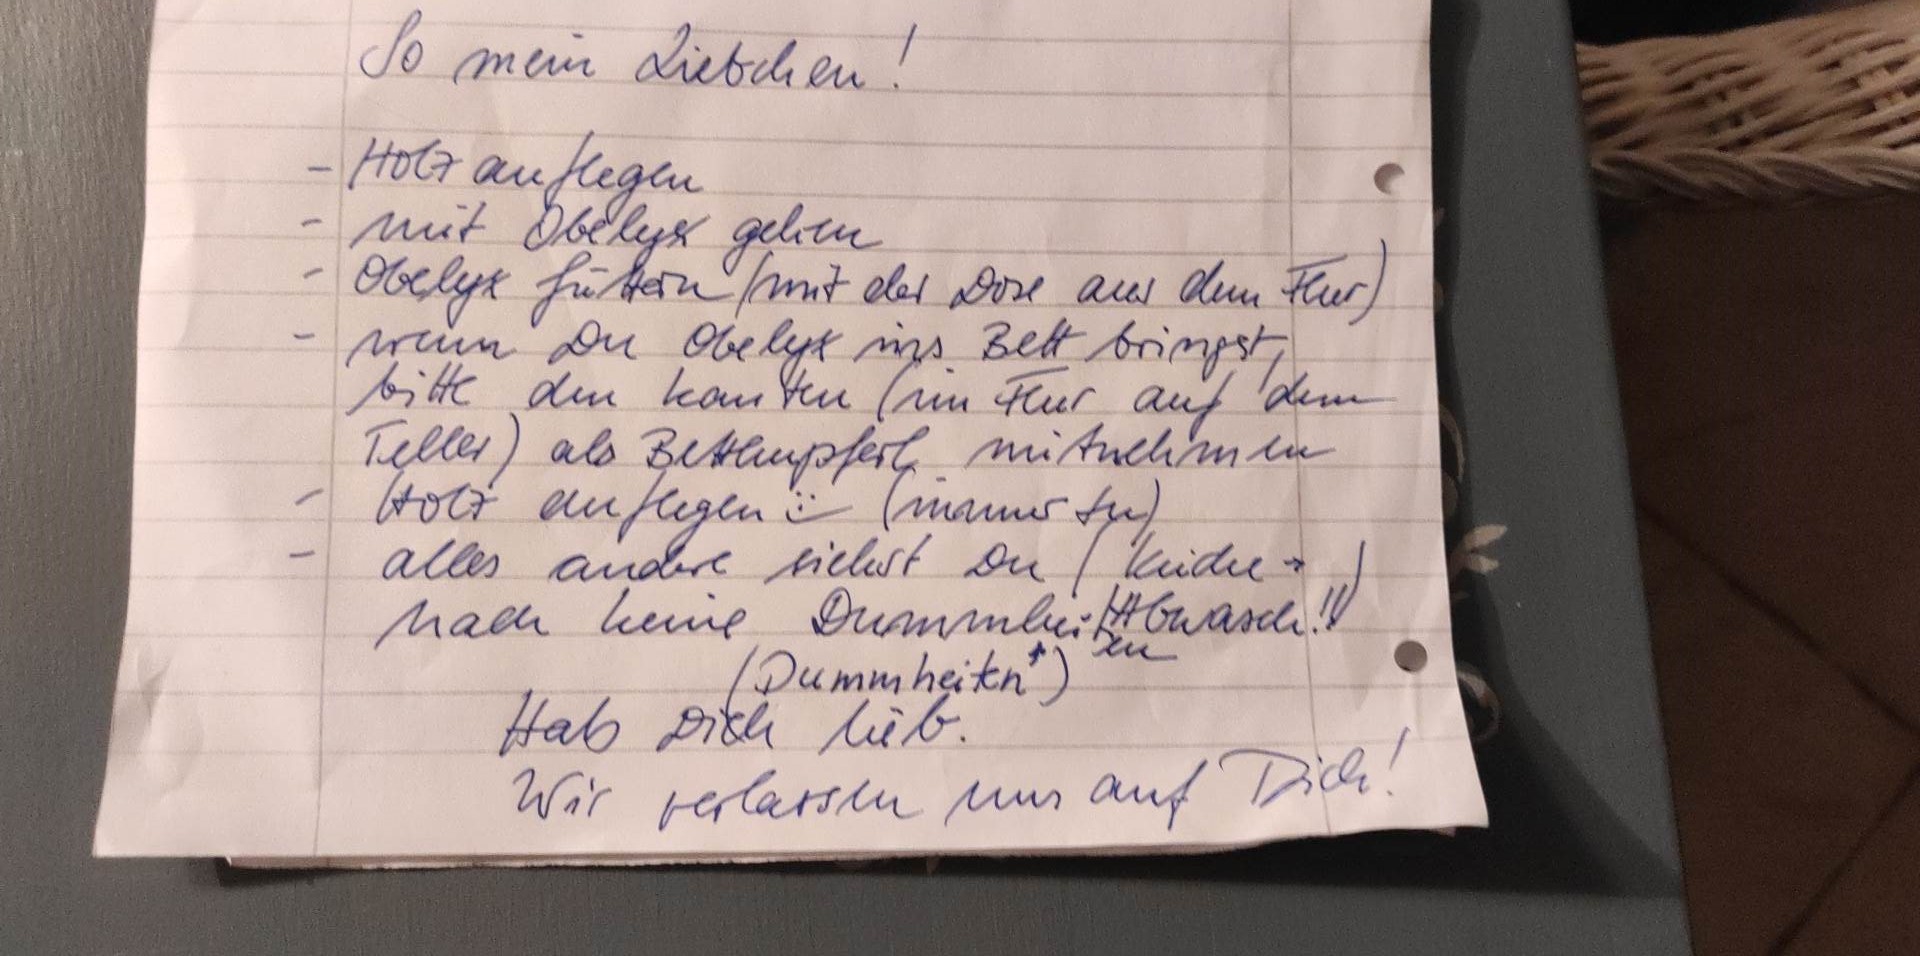 So mein Liebchen!
- Holz auflegen
- mit Obelyx gehen
- Obelyx füttern (mit der Dose aus dem Flur)
- wenn Du Obelyx ins Bett bringst,
bitte den Kanten (im Flur auf dem
Teller) als Betthupferl mitnehmen
- Holz auflegen :- (immer zu)
- alles andere siehst Du (Küche →
Abwasch!!)
mach keine Dummheiten
(Dummheiten*)
Hab Dich lieb.
Wir verlassen uns auf Dich!